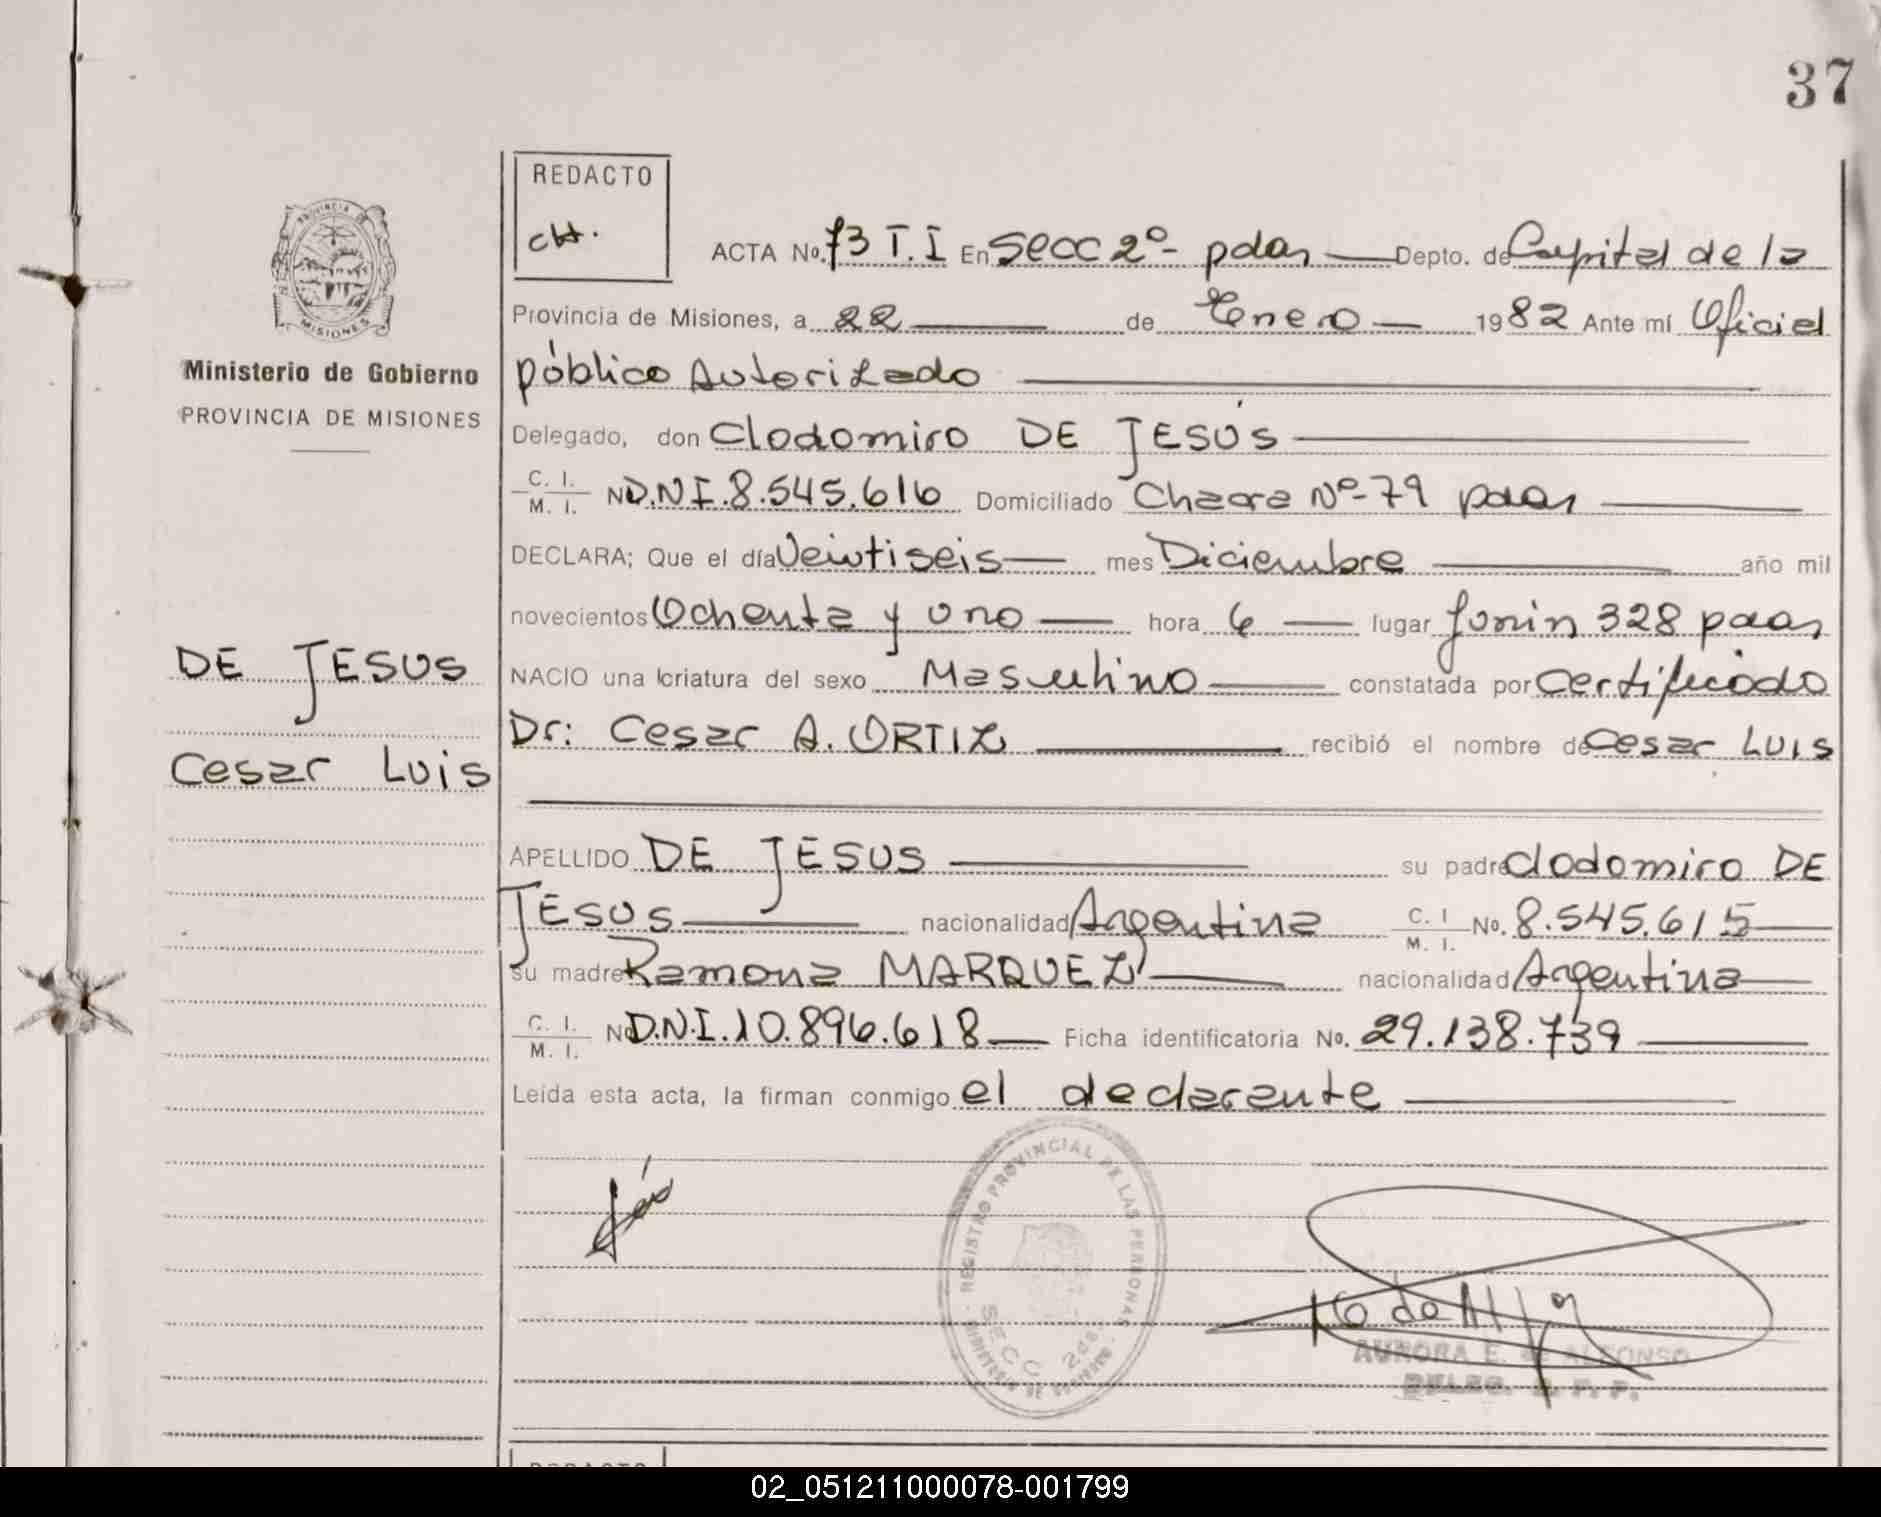 37
REDACTO
PROVINCIA DE
MISIONES
Ministerio de Gobierno
PROVINCIA DE MISIONES
DE JESUS
Cesar Luis
ACTA No. 73 T.I En Secc 2º- pdas Depto. de Capital de la
Provincia de Misiones, a 22 de Enero 1982 Ante mí Oficial
público Autorizado
Delegado, don Clodomiro DE JESÚS
C. I.
M. I. No D.N.I. 8.545.616 Domiciliado Chacra Nº-79 pdas
DECLARA; Que el día Veintiseis mes Diciembre año mil
novecientos Ochenta y uno hora 6 lugar Junin 328 pdas
NACIO una criatura del sexo Masculino constatada por Certificado
Dr: Cesar A. ORTIZ recibió el nombre de Cesar LUIS
APELLIDO DE JESUS su padre Clodomiro DE
JESUS nacionalidad Argentina C. I
M. I. No. 8.545.615
su madre Ramona MARQUEZ nacionalidad Argentina
C. I.
M. I. No D.N.I. 10.896.618 Ficha identificatoria No. 29.138.739
Leída esta acta, la firman conmigo el declarante
REGISTRO PROVINCIAL DE LAS PERSONAS
SECC 2da.
MINISTERIO DE GOBIERNO
AURORA E. de ALFONSO
REDACTO
02_051211000078-001799